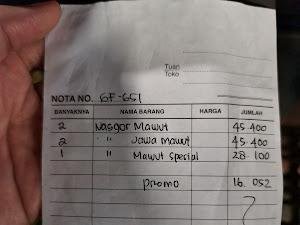 Tuan
Toko
NOTA NO. GF-651
BANYAKNYA NAMA BARANG HARGA JUMLAH
2 Nasgor Mawut 45.400
2 " Jawa Mawut 45.400
1 " Mawut Spesial 28.100
Promo 16.052